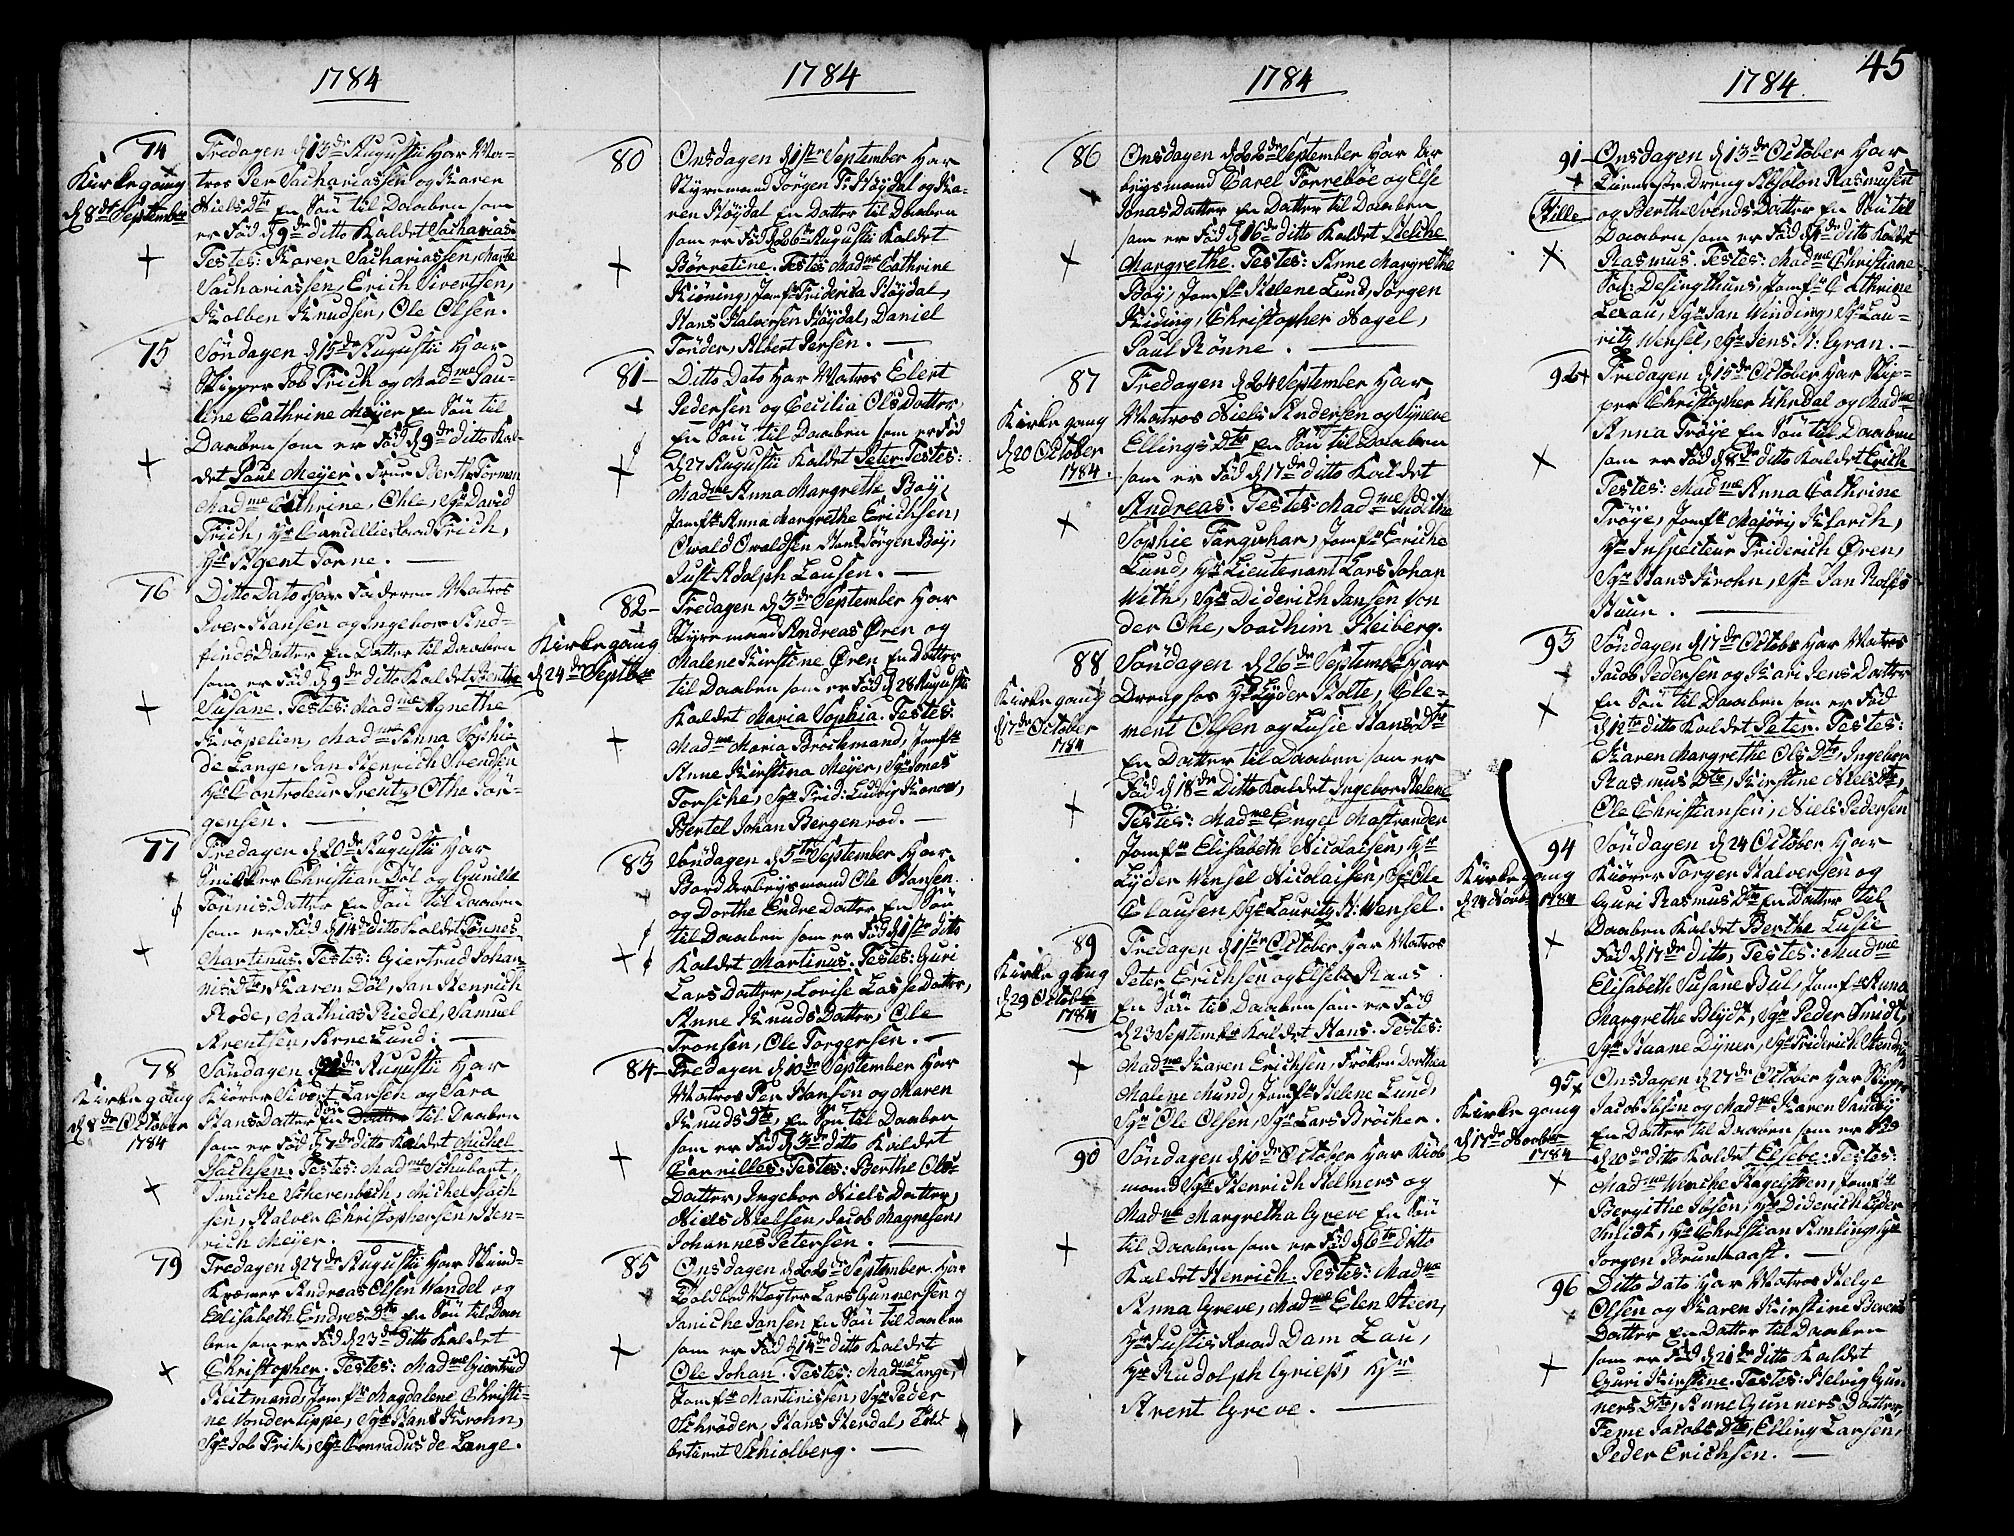 45
1784
74
Kirkegang
d 8de September
Fredagen d 13de Augusti har Ma-
tros Per Sachariassen og Karen
NielsDtr En Søn til Daaben som
er Fød d 9de ditto Kaldet Sacharias.
Testes: Karen Sachariassen, Marte
Sachariassen, Erich Sivertsen,
Kolben Knudsen, Ole Olsen.
75
Søndagen d 15de Augusti har
Skipper Job Frich og Madme Pau-
line Cathrine Meyer En Søn til
Daaben som er Fød d 9de ditto Kal-
det Paul Meyer. Frue Berthe Forman
Madme Cathrine, Ohle, Sgr David
Frich, Hr Cancellie Raad Frich,
Hr Agent Forne.
76
Ditto Dato har Faderen Matros
Iver Hansen og Ingebor And-
findsDatter En Datter til Daaben
som er Fød d 9de ditto Kaldet Benthe
Susane. Testes: Madme Agnethe
Krøpelien, Madme Anna Sophie
De Lange, Jan Henrich Svendsen
Hr Controleur Preutz, Othe Jør-
gensen.
77
Fredagen d 20de Augusti har
Snidker Christian Døl og Gunille
TønnisDatter En Søn til Daaben
som er Fød d 14de ditto Kaldet Tønnes
Martinus. Testes: Giertrud Johan
nisDtr, Karen Døl, Jan Henrich
Rode, Mathias Riedel, Samuel
Arentsen, Arne Lund.
78
Kirkegang
d 8de October
1784
Søndagen d 22de Augusti har
Kiører Sivert Larsen og Sara
HansDatter En Søn til Daaben
som er Fød d 7de ditto Kaldet Michel
Sachsen. Testes: Madme Schubart,
Janiche Scherenbech, Michel Sach
sen, Halver Christophersen, Hen-
rich Meyer.
79
Fredagen d 27de Augusti har Skind-
Kræmer Andreas Olsen Wandel og
Elisabeth EndresDtr En Søn til Daa
ben som er Fød d 23de ditto Kaldet
Christopher. Testes: Madme Giertrud
Rutmand, Jomfr Magdalene Christi-
ne Vonder Lippe, Sgr Hans Krohn,
Sgr Job Frik, Sgr Conradus de Lange.
1784
80
Onsdagen d 1ste September har
Styremand Jørgen F: Høydal og Ka-
ren Høydal En Datter til Daaben
som er Fød d 26de Augusti Kaldet
Børretine. Testes Madme Cathrine
Kiøning, Jomfr Friderica Høydal,
Hans Halversen Høydal, Daniel
Tønder, Albert Persen.
81
Ditto Dato har Matros Elert
Pedersen og Cecilia OlsDatter,
En Søn til Daaben som er Fød
d 27 Augusti Kaldet Peter. Testes:
Madme Anna Margrethe Bøy,
Jomfr Anna Margrethe Erichsen,
Owald Owaldsen, Hans Jørgen Bøy,
Just Adolph Lausen.
82
Kirkegang
d 24de Septbr
Fredagen d 3de September har
Styremand Andreas Øren og
Malene Kirstine Øren En Datter
til Daaben som er Fød d 28 Augusti
Kaldet Maria Sophia. Testes:
Madme Maria Brochmand, Jomfr
Anne Kirstina Meyer, Sgr Jonas
Forsche, Sgr Frid: Ludvig Konow,
Bertel Johan Bergenrod.
83
Søndagen d 5te September har
Bordderbeysmand Ole Hansen
og Dorthe EndreDatter En Søn
til Daaben som er Fød d 1ste ditto
Kaldet Martinus. Testes: Guri
LarsDatter, Lovise LasseDatter,
Anne KnudsDatter, Ole
Tronsen, Ole Torgersen.
84
Fredagen d 10de September har
Matros Per Hansen og Maren
KnudsDtr, En Søn til Daaben
som er Fød d 3de ditto Kaldet
Carnilles. Testes: Berthe Ols-
Datter, Ingebor NielsDatter,
Niels Nielsen, Jacob Magnesen,
Johannes Petersen.
85
Onsdagen d 22de September har
Toldbod Vægter Lars Gunnersen og
Janiche Jansen En Søn til Daaben
som er Fød d 14de ditto Kaldet
Ole Johan. Testes: Madme Lange,
Jomfr Martinissen, Sgr Peder
Schrøder, Hans Herdal, Eild
betient Schiolberg.
1784
86
Onsdagen d 22de September har Ar
beysmand Carel Torreboe og Else
JonasDatter En Datter til Daaben
som er Fød d 16de ditto Kaldet Helche
Margrethe. Testes: Anne Margrethe
Bøy, Jomfr Helene Lund, Jørgen
Kiding, Christopher Nagel,
Paul Rønne.
87
Kirkegang
d 20 October
1784
Fredagen d 24 September har
Matros Niels Andersen og Signeve
EllingsDtr En Søn til Daaben
som er Fød d 17de ditto Kaldet
Andreas: Testes: Madme Judithe
Sophie Farquhar, Jomfr Eriche
Lund, Hr Lieutenant Lars Johan
With, Sgr Diderich Jansen Von
der Ohe, Joachim Heiberg.
88
Kirkegang
d 17de October
1784
Søndagen d 26de September har
Dreng hos Hr Lyder Holte, Cle-
ment Olsen og Lusie HansDtr
En Datter til Daaben som er
Fød d 18de Ditto Kaldet Ingebor Helene
Testes: Madme Engel Mastrander
Jomfr Elisabeth Nicolaisen, Hr
Lyder Wensel Nicolaisen, Sgr Ole
Clausen, Sgr Lauritz H: Wensel.
89
Kirkegang
d 29 October
1784
Fredagen d 1ste October har Matros
Peter Erichsen og Elsebe Raas
En Søn til Daaben som er Fød
d 23 September Kaldet Hans. Testes:
Madme Karen Erichsen, Frøken Dorthea
Malene Mund, Jomfr Helene Lund,
Sgr Ole Olsen, Sgr Lars Brøcher.
90
Søndagen d 10de October har Kiøb
mand Sgr Henrich Helmers og
Madme Margretha Greve En Søn
til Daaben som er Fød d 6te ditto
Kaldet Henrich. Testes: Madme
Anna Greve, Madme Elen Steen,
Hr Justis Raad Dam Lau,
Hr Rudolph Grieß, Hr
Arent Greve.
1784.
91
Stille
Onsdagen d 13de October har
Tienneste Dreng Absolon Rasmusen
og Berthe SvendsDatter En Søn til
Daaben som er Fød d 4de ditto Kaldet
Rasmus. Testes: Madme Christiane
Sof: Desingthuns, Jomfr Cathrine
Lexau, Sgr Jan Winding, Sgr Lau-
ritz Wensel, Sgr Jens H: Gran.
92
Fredagen d 15de October har Skip-
per Christopher Uhrdal og Madme
Anna Trøye En Søn til Daaben
som er Fød d 8de ditto Kaldet Erich
Testes: Madme Anna Cathrine
Trøye, Jomfr Majory Klarch,
Hr Inspecteur Friderich Øren,
Sgr Hans Krohn, Sgr Jan Rolfs
Huun.
93
Søndagen d 17de October har Matros
Jacob Pedersen og Kari JensDatter
En Søn til Daaben som er Fød
d 12te ditto Kaldet Peter. Testes:
Karen Margrethe OlsDtr, Ingebor
RasmusDtr, Kirstine NielsDtr,
Ole Christiansen, Niels Pedersen
94
Kirkegang
d 24 Novbr 1784
Søndagen d 24 October har
Kiører Torger Halversen og
Guri RasmusDtr En Datter til
Daaben Kaldet Berthe Lusie
Fød d 17de ditto, Testes: Madme
Elisabeth Susane Bul, Jomfr Anna
Margrethe Blydt, Sgr Peder Smidt,
Sgr Haane Dyner, Sgr Friderich Hendr
95
Kirkegang
d 17de Novbr
1784
Onsdagen d 27de October har Skipper
Jacob Ibsen og Madme Karen Sandby
En Datter til Daaben som er Fød
d 20de ditto Kaldet Elsebe: Testes:
Madme Wenche Hageltsen, Jomfr
Bergithe Ibsen, Hr Diderich Leder
Smidt, Hr Christian Amling, Hr
Jørgen Brunkaast.
96
Ditto Dato har Matros Helge
Olsen og Karen Kirstine Berents
Datter En Datter til Daaben
som er Fød d 21de ditto Kaldet
Guri Kirstine. Testes: Helvig Gun
nersDtr, Anne GunnersDatter,
Feme JacobsDtr, Elling Larsen,
Peder Erichsen.